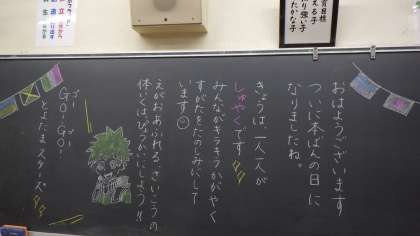 おはようございます
ついに本ばんの日に
なりましたね。
きょうは、一人一人が
しゅやくです
みんながキラキラかがやく
すがたをたのしみにして
います
えがおあふれるさいこうの
体いくはぴょうかいにしよう!!
GO!GO!
とよたまスターズ